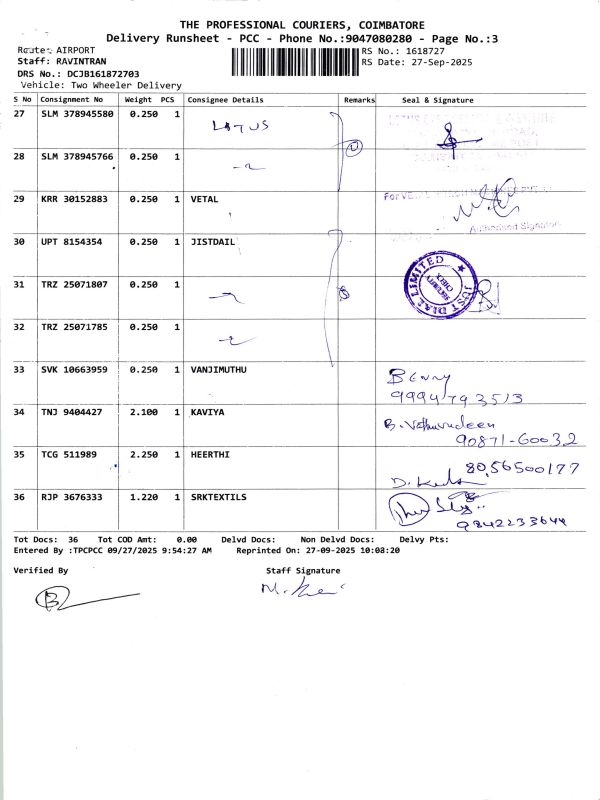 THE PROFESSIONAL COURIERS, COIMBATORE
Delivery Runsheet - PCC - Phone No.:9047080280 - Page No.:3
Route: AIRPORT
RS No.: 1618727
Staff: RAVINTRAN
RS Date: 27-Sep-2025
DRS No.: DCJB161872703
Vehicle: Two Wheeler Delivery
S No Consignment No Weight PCS Consignee Details Remarks Seal & Signature
27 SLM 378945580 0.250 1 LOTUS
28 SLM 378945766 0.250 1
29 KRR 30152883 0.250 1 VETAL
Authorised Signatory
30 UPT 8154354 0.250 1 JISTDAIL
JUST DIAL LIMITED
31 TRZ 25071807 0.250 1
32 TRZ 25071785 0.250 1
33 SVK 10663959 0.250 1 VANJIMUTHU Benny
9994793513
34 TNJ 9404427 2.100 1 KAVIYA
90871-60032
35 TCG 511989 2.250 1 HEERTHI 8056500177
36 RJP 3676333 1.220 1 SRKTEXTILS
9842233644
Tot Docs: 36 Tot COD Amt: 0.00 Delvd Docs: Non Delvd Docs: Delvy Pts:
Entered By :TPCPCC 09/27/2025 9:54:27 AM Reprinted On: 27-09-2025 10:08:20
Verified By Staff Signature